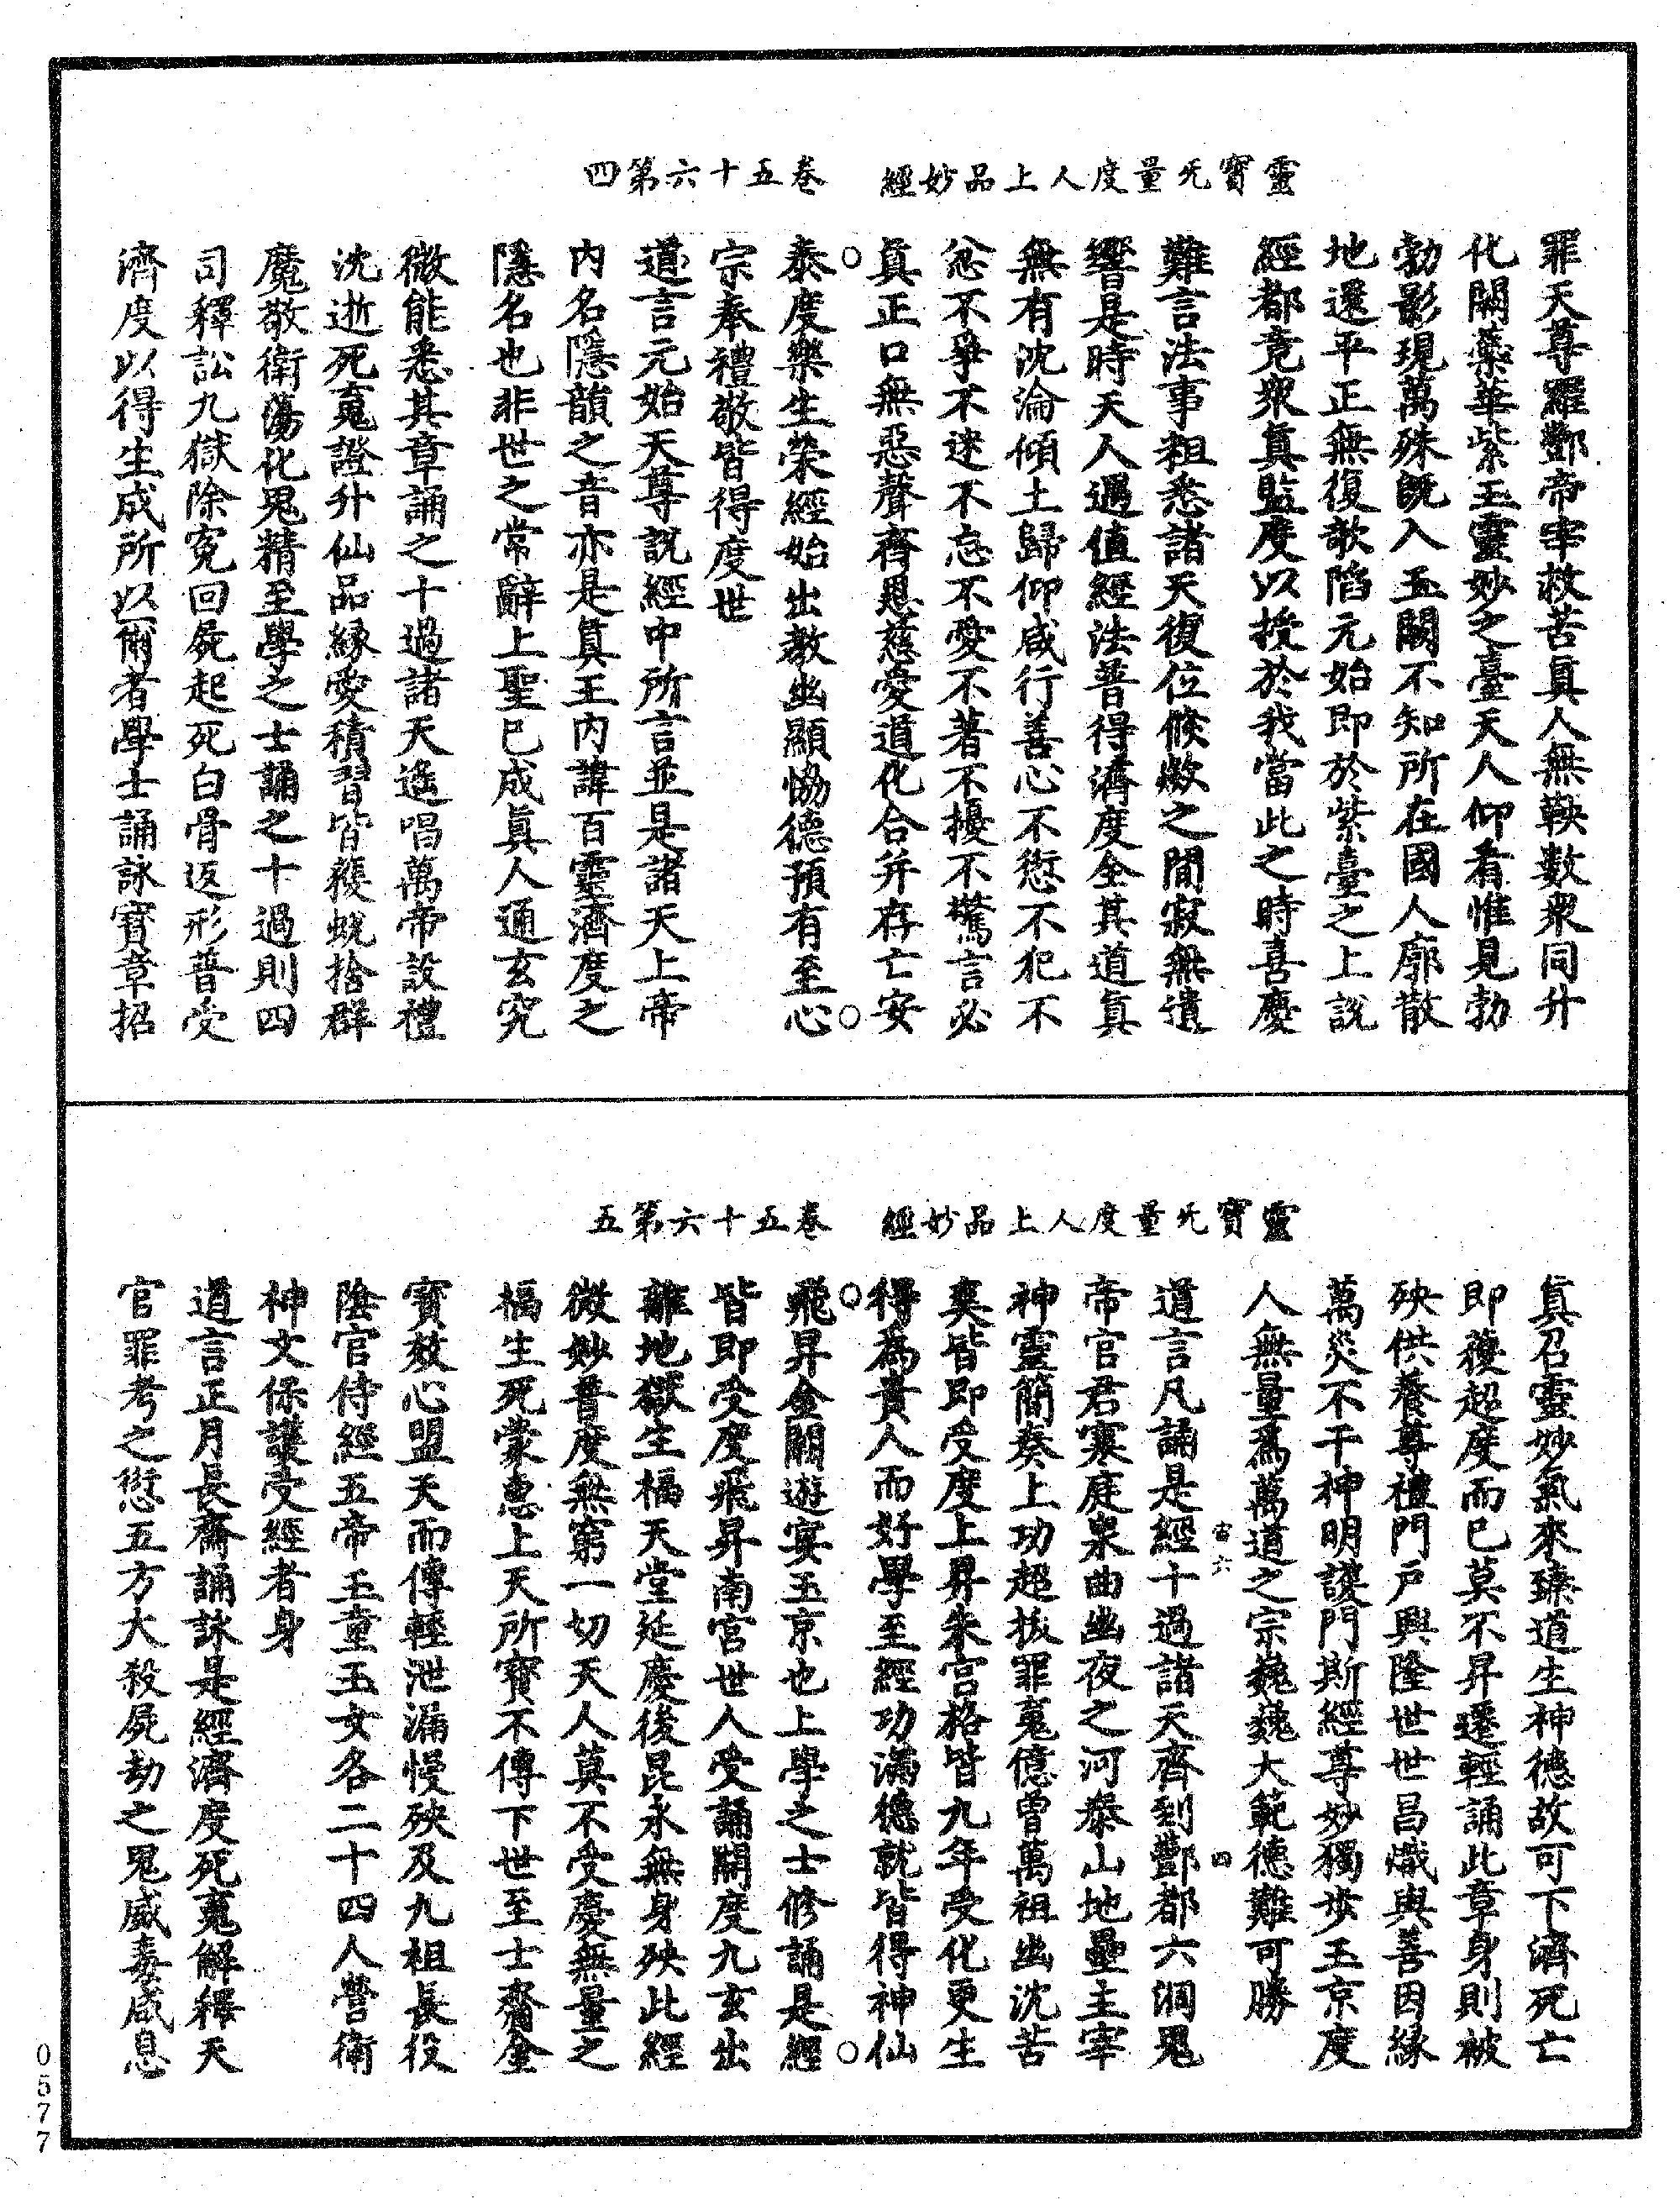 靈寶无量度人上品妙經　卷五十六第四
罪天尊羅酆帝宰救苦眞人無鞅數衆同升
化關蘂華紫玉靈妙之臺天人仰看惟見勃
勃影現萬殊旣入玉闕不知所在國人廓散
地還平正無復欹陷元始即於紫臺之上說
經都竟衆眞監度以授於我當此之時喜慶
難言法事粗悉諸天復位倏欻之間寂無遺
響是時天人遇值經法普得濟度全其道眞
無有沈淪傾土歸仰咸行善心不愆不犯不
忿不爭不迷不忘不愛不著不擾不驚言必
眞正口無惡聲齊恩慈愛道化合并存亡安
泰度樂生榮經始出教幽顯恊德預有至心
宗奉禮敬皆得度世
道言元始天尊説經中所言並是諸天上帝
内名隱韻之音亦是眞王内諱百靈濟度之
隱名也非世之常辭上聖已成眞人通玄究
微能悉其章誦之十過諸天遙唱萬帝設禮
沈逝死䰟證升仙品緣愛積習皆獲蛻捨群
魔敬衛蕩化鬼精至學之士誦之十過則四
司釋訟九獄除寃回屍起死白骨返形普受
濟度以得生成所以爾者學士誦詠寳章招
靈寶无量度人上品妙經　卷五十六第五
眞召靈妙氣來臻道生神德故可下濟死亡
即獲超度而已莫不昇遷輕誦此章身則被
殃供養尊禮門戸興隆世世昌熾與善因緣
萬災不干神明護門斯經尊妙獨步玉京度
人無量爲萬道之宗巍巍大範德難可勝
道言凡誦是經十過諸天齊到酆都六洞鬼
帝官君寒庭泉曲幽夜之河泰山地壘主宰
神靈簡奏上功超拔罪䰟億曾萬祖幽沈苦
爽皆即受度上昇朱宫格皆九年受化更生
得爲貴人而好學至經功滿德就皆得神仙
飛昇金闕遊宴玉京也上學之士修誦是經
皆即受度飛昇南宫世人受誦關度九玄出
離地獄生福天堂延慶後昆永無身殃此經
微妙普度無窮一切天人莫不受慶無量之
福生死蒙惠上天所寳不傳下世至士齎金
寳效心盟天而傳輕泄漏慢殃及九祖長役
陰官侍經五帝玉童玉女各二十四人營衛
神文保護受經者身
道言正月長齋誦詠是經濟度死䰟解釋天
官罪考之愆五方大殺屍劫之鬼威毒咸息
四
0577